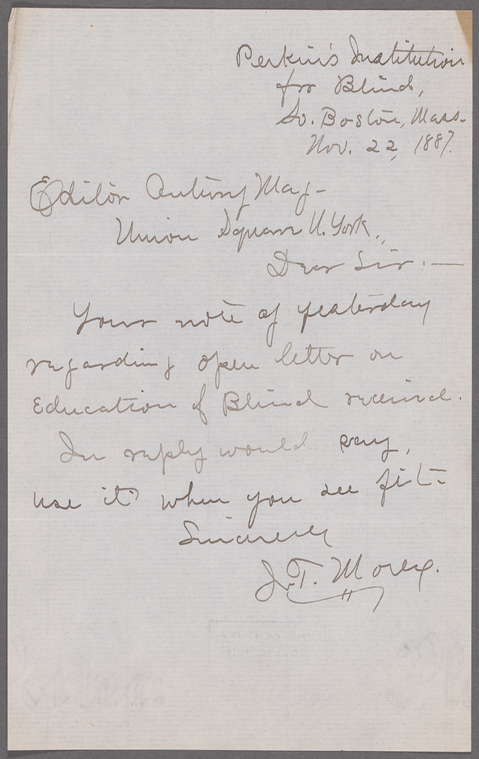 Perkin's Institution
for Blind,
So. Boston, Mass.
Nov. 22, 1887.
Editor Century Mag-
Union Square N. York.,
Dear Sir. —
Your note of yesterday
regarding open letter on
Education of Blind received.
In reply would say,
use it when you see fit.
Sincerely
J. T. Morey.